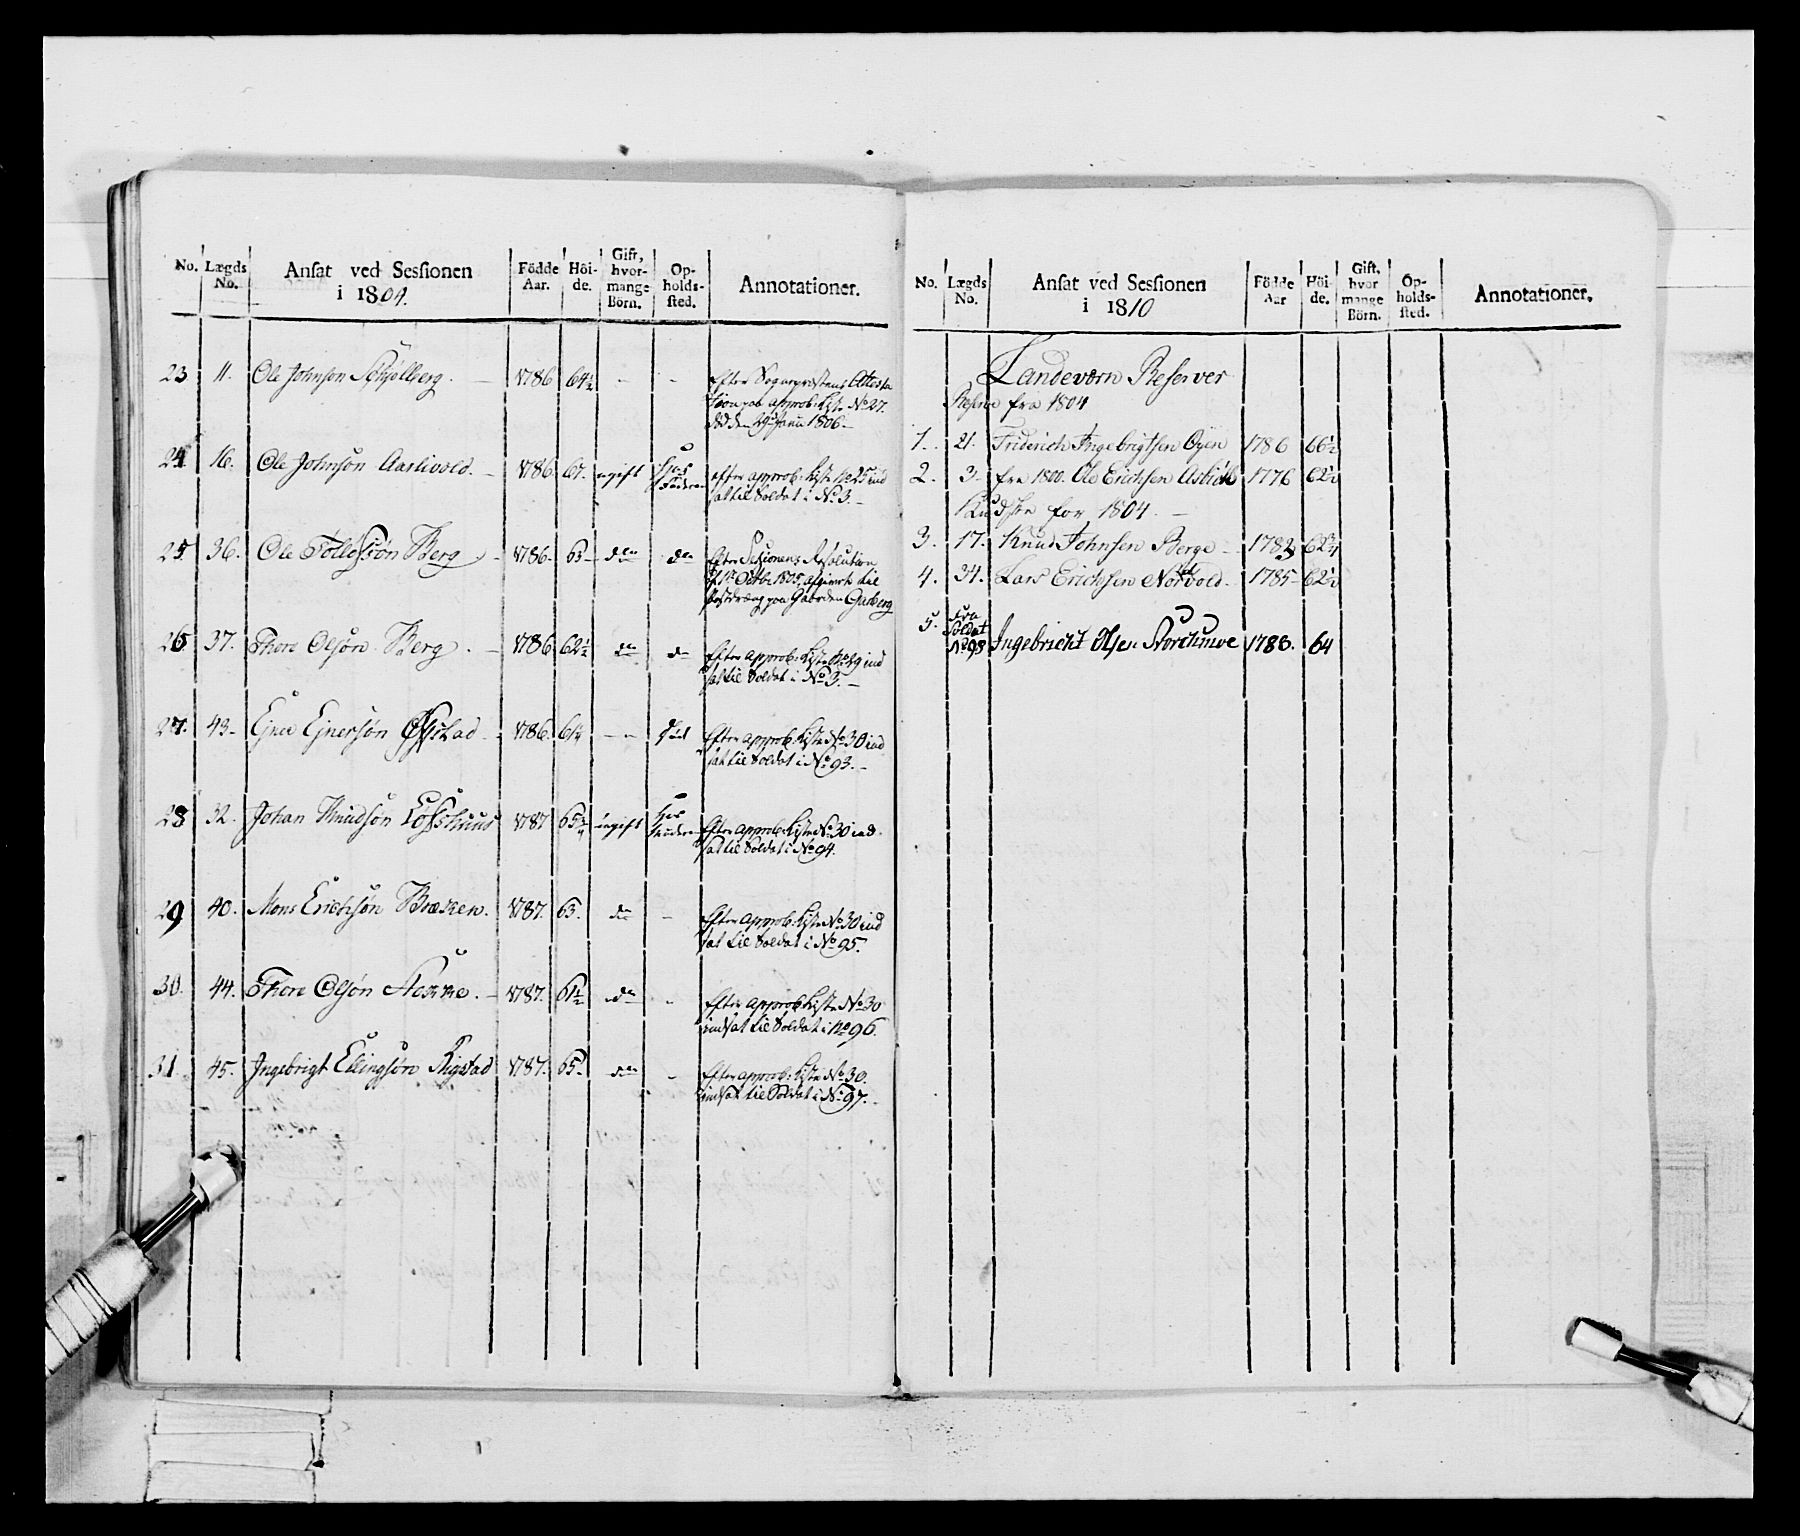 No. Lægds No. Ansat ved Sessionen i 1804. Födde Aar. Höi-de. Gift, hvor-mange Börn. Op-holds-sted. Annotationer.
23 11. Ole Johnson - 1786 64½ - -
Efter Sogneprestens Attesta
approb: Liste No 27.
död den Janu 1806. -
24 16. Ole Johnsön Aarlivold. - 1786. 67. ugift hos Faderen
efter approb: Liste No 25 ind
sat til Soldat i No 3. -
25 36. Ole Tollefssön Berg - 1786. 63 - do do
Efter Sesionens Resolution
Octbr 1805, til
paa Gaarden Garberg
26 37. Thore Olsön Berg. - 1786 62½ do do
Efter approb: Liste No 29 ind
sat til Soldat i No 5. -
27. 43. Ejner Ejnersön Öfstad - 1786. - -
Efter approb: Liste No 30 ind
sat til Soldat i No 93. -
28 32. Johan Knudsön 1787 ugift hos
Efter approb: Liste No 30 ind
sat til Soldat i No 94.
29 40. Mons Erichsön Bræken. 1787. 63. do -
Efter approb: Liste No 30 ind
sat til Soldat i No 95.
30. 44. Thore Olsön - 1787. 61½ do -
Efter approb Liste No 30
indsat til Soldat i No 96.
31. 45. Ingebrigt Ellingsön Rigstad 1787. 65. do -
Efter approb: Liste No 30.
indsat til Soldat i No 97. -
No. Lægds No. Ansat ved Sessionen i 1810 Födde Aar Höi-de. Gift, hvor mange Börn. Op-holds-sted. Annotationer.
Landeværn Reserver
Reserve fra 1804
1. 21. Friderich Ingebrigtsen Öyen 1786 66½
2. 3. fra 1800. Ole Erichsen 1776 62½
for 1804. -
3. 17. Knud Johnsen Berge - 1782 62¾
4. 34. Lars Erichsen Norvold. 1785 - 62½
5. Fra Soldat No 98 Ingebricht Olsen 1788. 64